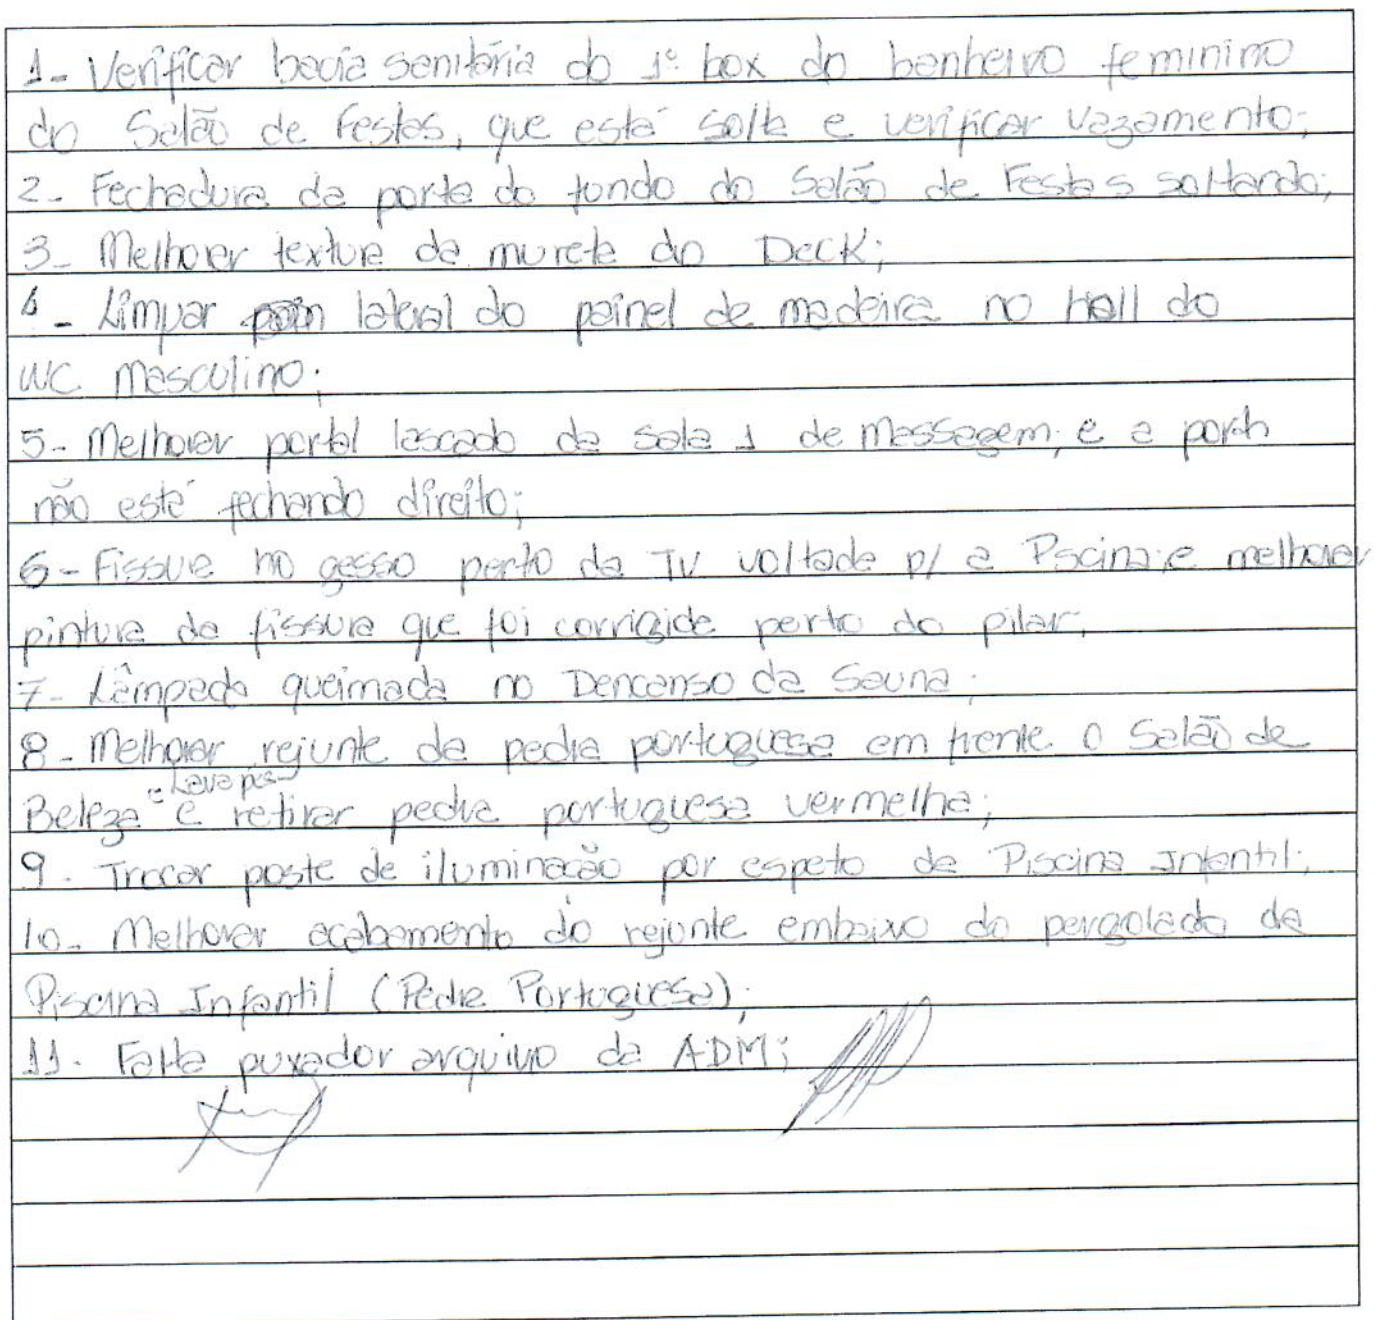 1- Verificar bacia sanitária do 1º box do banheiro feminino
do Salão de Festas, que está solta e verificar vazamento;
2- Fechadura da porta do fundo do Salão de Festas soltando;
3- Melhorar textura da mureta do Deck;
4- Limpar lateral do painel de madeira no hall do
WC masculino;
5- Melhorar portal lascado da sala 1 de Massagem, e a porta
não está fechando direito;
6- Fissura no gesso perto da TV voltada p/ a Pscina e melhorar
pintura da fissura que foi corrigida perto do pilar;
7- Lâmpada queimada no Dencanso da Sauna;
8- Melhorar rejunte da pedra portuguesa em frente o Salão de
e Lava pés
Beleza e retirar pedra portuguesa vermelha;
9- Trocar poste de iluminação por espeto da Piscina Infantil;
10- Melhorar acabamento do rejunte embaixo do pergolado da
Piscina Infantil (Pedra Portuguesa);
11- Falta puxador arquivo da ADM;